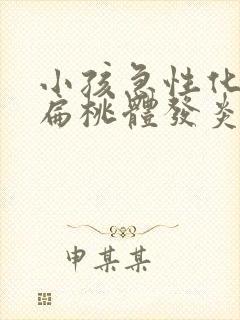 小孩急性化
扁桃體發炎
申某某